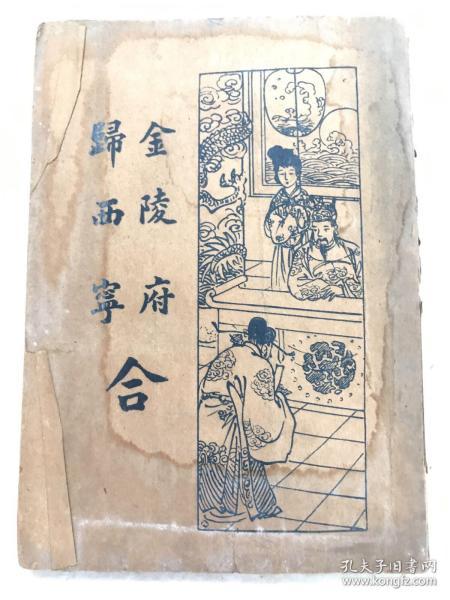 金陵府
歸西寧
合
孔夫子旧书网
www.kongfz.com